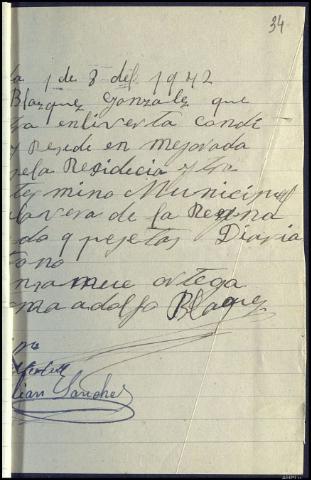 34
la 1 de 8 del 1942
Blazquez Gonzalez que
tra enliverta condi
y Reside en mejorada
nela Residecia y tra
termino Municipal
lavera de la Reyna
do 9 pesetas Diaria
ortega
adolfo Blaquez
lian Sanches